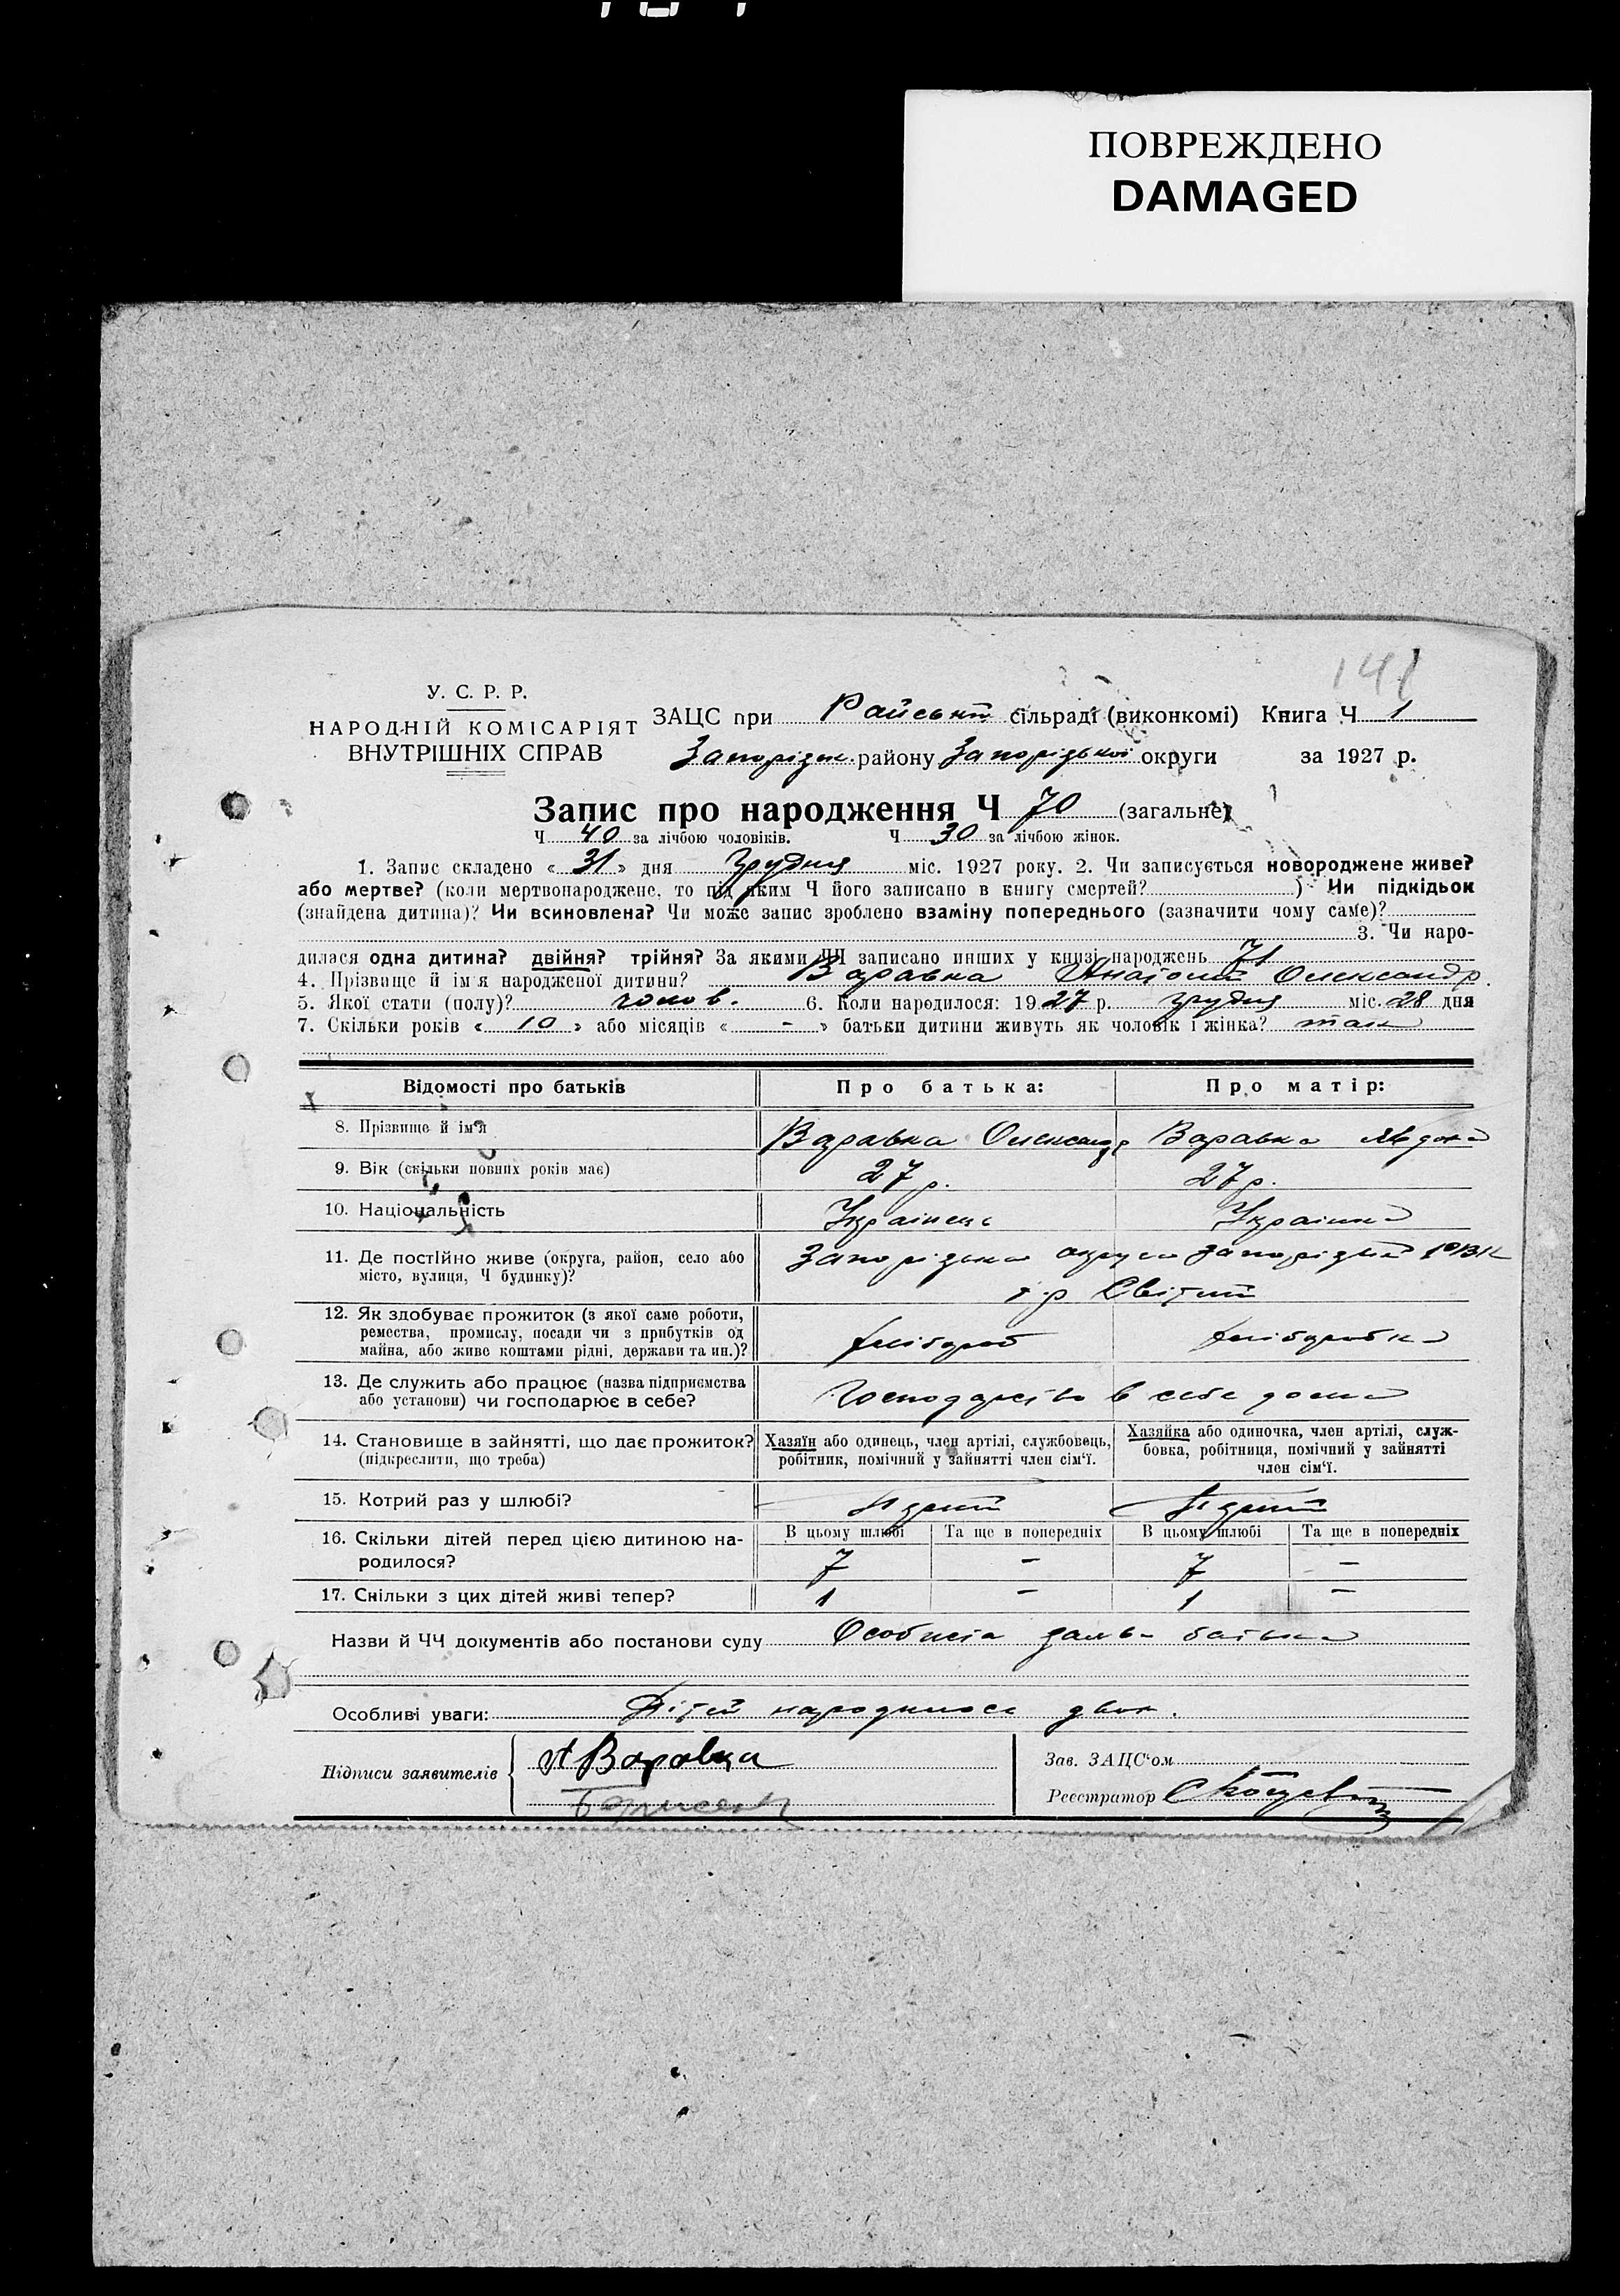 ПОВРЕЖДЕНО
DAMAGED
У. С. Р. Р.
НАРОДНІЙ КОМІСАРІЯТ
ВНУТРІШНІХ СПРАВ
ЗАЦС при Райській сільраді (виконкомі) Книга Ч 1
Запорізьк. району Запорізької округи за 1927 р.
Запис про народження Ч 70 (загальне)
Ч 40 за лічбою чоловіків. Ч 30 за лічбою жінок.
1. Запис складено « 31 » дня грудня міс. 1927 року. 2. Чи записується новороджене живе?
або мертве? (коли мертвонароджене, то під яким Ч його записано в книгу смертей? ) Чи підкідьок
(знайдена дитина)? Чи всиновлена? Чи може запис зроблено взаміну попереднього (зазначити чому саме)?
3. Чи наро-
дилася одна дитина? двійня? трійня? За якими ЧЧ записано инших у книзі народжень 71
4. Прізвище й ім'я народженої дитини? Варавка Анатолій Олександр.
5. Якої стати (полу)? чолов. 6. Коли народилося: 1927 р. грудня міс. 28 дня
7. Скільки років « 10 » або місяців « - » батьки дитини живуть як чоловік і жінка? так
Відомості про батьків Про батька: Про матір:
8. Прізвище й ім'я Варавка Олександр Варавка Явдоха
9. Вік (скільки повних років має) 27 р. 27 р.
10. Національність Українець Українка
11. Де постійно живе (округа, район, село або місто, вулиця, Ч будинку)? Запорізька округа Запорізький РВК
Світлий
12. Як здобуває прожиток (з якої саме роботи, ремества, промислу, посади чи з прибутків од майна, або живе коштами рідні, держави та ин.)? хлібороб хліборобка
13. Де служить або працює (назва підприємства або установи) чи господарює в себе? Господарство в себе дома
14. Становище в зайнятті, що дає прожиток? (підкреслити, що треба) Хазяїн або одинець, член артілі, службовець, робітник, помічний у зайнятті член сім'ї. Хазяйка або одиночка, член артілі, служ-бовка, робітниця, помічний у зайнятті член сім'ї.
15. Котрий раз у шлюбі?
16. Скільки дітей перед цією дитиною на-родилося? В цьому шлюбі Та ще в попередніх В цьому шлюбі Та ще в попередніх
7 - 7 -
17. Скільки з цих дітей живі тепер? 1 - 1 -
Назви й ЧЧ документів або постанови суду Особиста батька
Особливі уваги: Дітей народилося двоє.
Підписи заявителів А Варавка
Зав. ЗАЦС'ом
Реєстратор